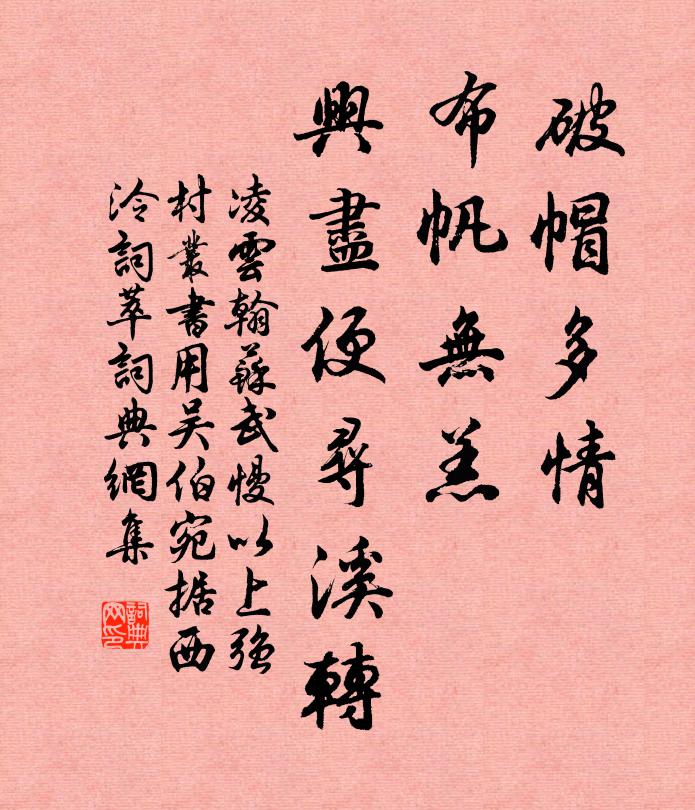 破帽多情
布帆無恙
興盡便尋溪轉
凌雲翰蘇武慢以上強
村叢書用吴伯宛据西
泠詞萃詞典網集
詞典网印